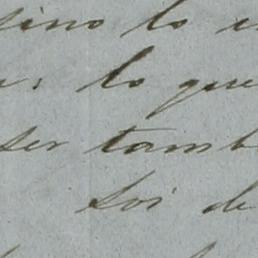 sino lo
lo que
ser tamb
Soi de